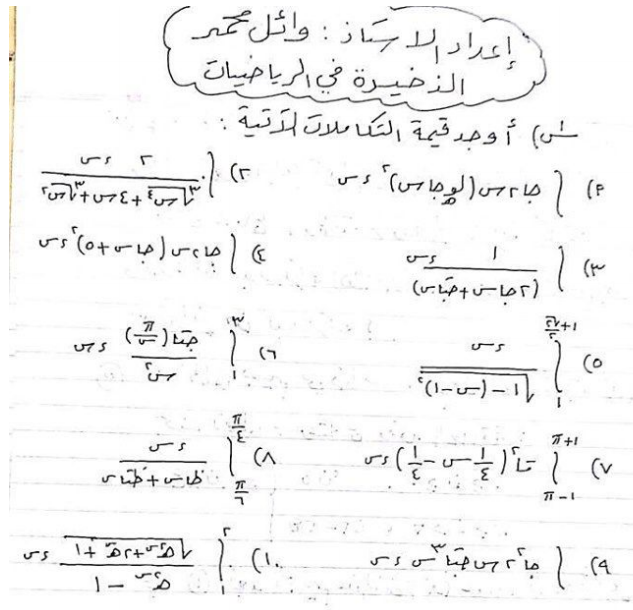 إعداد الاستاذ : وائل محمد
الذخيرة في الرياضيات
س) أوجد قيمة التكاملات الآتية :
١) ∫ جا٢س (لو_هـ جاس)^٢ ءس
٢) ∫ ٢ ءس / (∛س^٤ + ٤س + ∛س^٢)
٣) ∫ ١ ءس / (٢جاس + جتاس)
٤) ∫ جا٢س (جاس + ٥)^٢ ءس
٥) ∫ ءس / √(١ - (س - ١)^٢)
٦) ∫_١^٣ جتا(π/س) / س^٢ ءس
٧) ∫_{π-١}^{π+١} تا^٢(١/٤ س - ١/٤) ءس
٨) ∫_{π/٦}^{π/٤} ءس / (ظاس + ظتاس)
٩) ∫ جا^٢ ٢س جتا^٣ س ءس
١٠) ∫_١^٢ √(هـ^٢س + ٢هـ^س + ١) / (هـ^٢س - ١) ءس